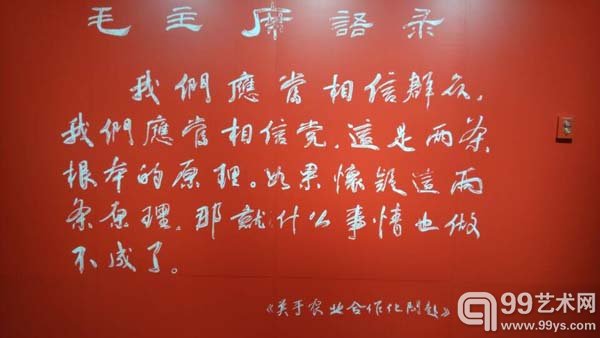 毛主席語录
我們應當相信群众，
我們應當相信党，這是两条
根本的原理。如果懷疑這兩
条原理，那就什么事情也做
不成了。
《关于农业合作化問题》
99艺术网
www.99ys.com